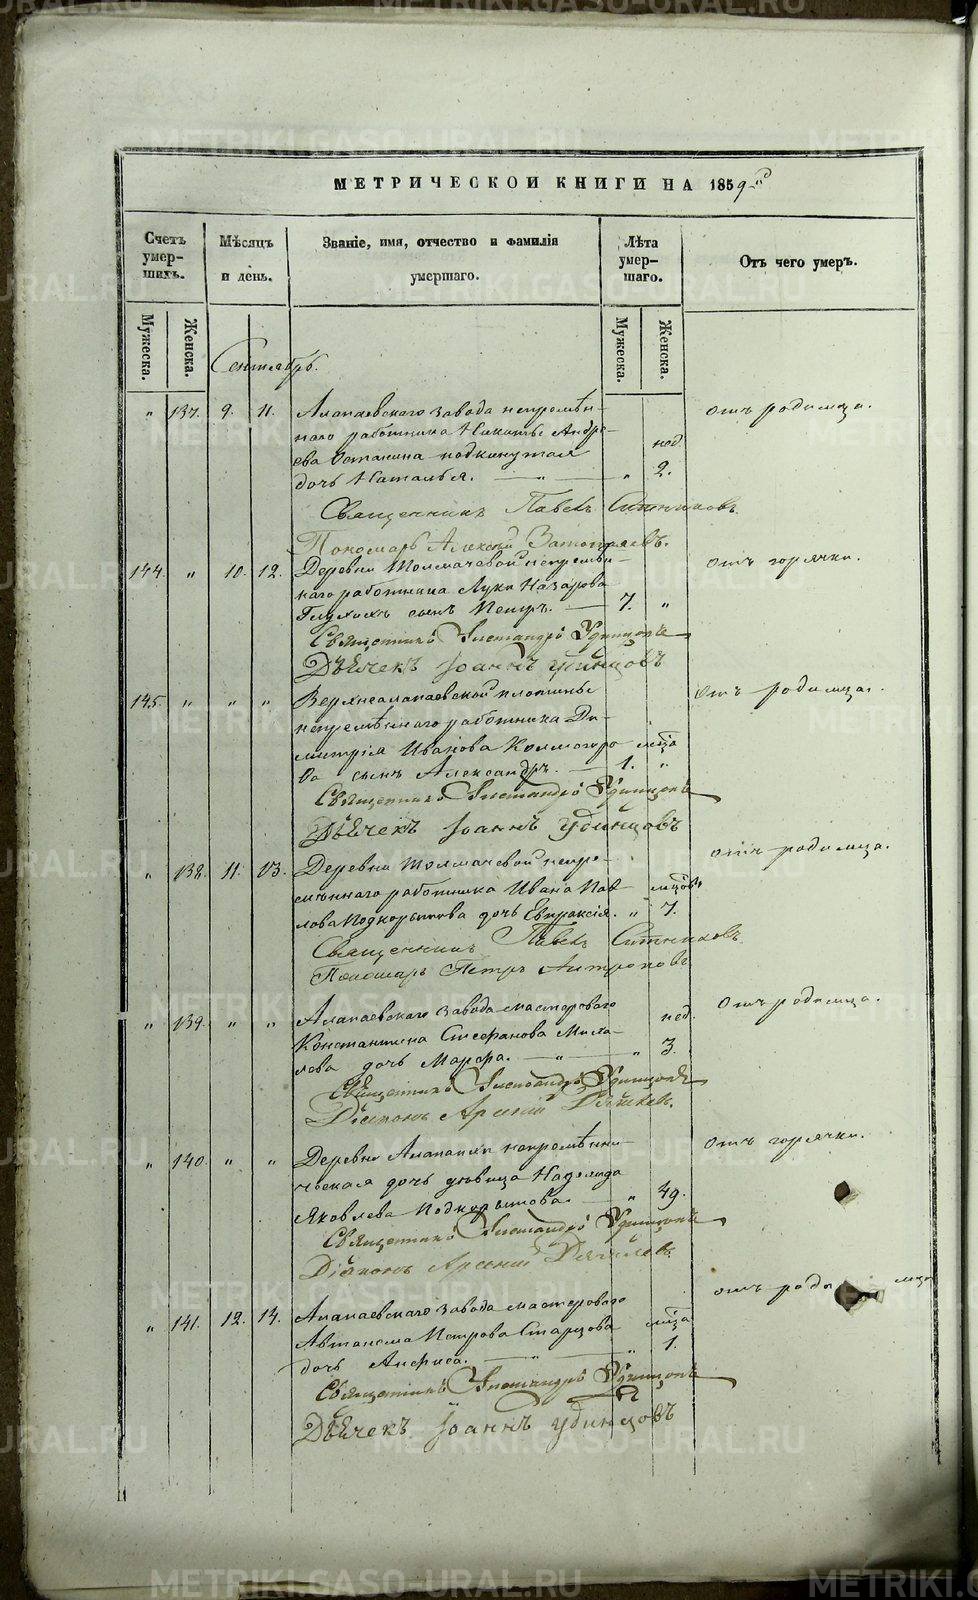 METRIKI.GASO-URAL.RU
МЕТРИЧЕСКОЙ КНИГИ НА 1859 й
Счетъ умершихъ.
Мѣсяцъ и день.
Званіе, имя, отчество и фамилія умершаго.
Лѣта умершаго.
Отъ чего умеръ.
Мужеска. Женска. Мужеска. Женска.
Сентябрь.
" 137. 9. 11. Алапаевскаго завода непремѣн- отъ родимца.
наго работника Никиты Андре- нед
ева Останина подкинутая
дочь Наталья. " " 2.
Священникъ Павелъ Ситниковъ
Пономарь Алексѣй
144. " 10. 12. Деревни Толмачевой непремѣн- отъ горячки.
наго работника Луки Назарова
Глухихъ сынъ Петръ. 7. "
Священникъ Александръ Удинцовъ
Дьячекъ Іоаннъ Удинцовъ
145. " " " Верхнеалапаевской плотины отъ родимца.
непремѣннаго работника Ди-
митрія Иванова Колмогоро- мца
ва сынъ Александръ. 1. "
Священникъ Александръ Удинцовъ
Дьячекъ Іоаннъ Удинцовъ
" 138. 11. 13. Деревни Толмачевой непре- отъ родимца.
мѣннаго работника Ивана Пав- мцовъ
лова Подкорытова дочь Евпраксія. " 7.
Священникъ Павелъ Ситниковъ
Пономарь Петръ Антроповъ
" 139. " " Алапаевскаго завода мастероваго отъ родимца.
Константина Стефанова Миха- нед.
лева дочь Марфа. " " 3.
Священникъ Александръ Удинцовъ
Діаконъ Арсеній
" 140. " " Деревни Алапаихи непремѣнни- отъ горячки.
ческая дочь дѣвица Надежда
Яковлева Подкорытова. " 49.
Священникъ Александръ Удинцовъ
Діаконъ Арсеній
" 141. 12. 14. Алапаевскаго завода мастероваго отъ родимца
Автонома Петрова Старцова мца
дочь Анфиса. " " 1.
Священникъ Александръ Удинцовъ
Дьячекъ Іоаннъ Удинцовъ
METRIKI.GASO-URAL.RU